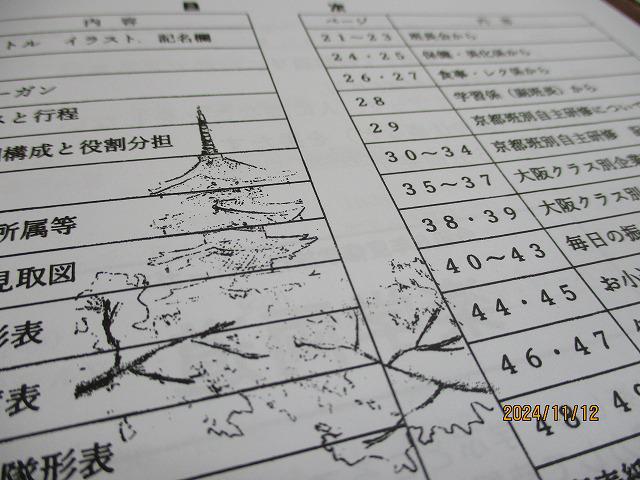 目 次
内容
ページ
内容
トル イラスト、記名欄
21～23
班長会から
24・25
保健・美化係から
ーガン
26・27
食事・レク係から
と行程
28
学習係（副班長）から
構成と役割分担
29
京都班別自主研修につい
30～34
京都班別自主研修
35～37
大阪クラス別企
所属等
38・39
大阪クラス別
見取図
40～43
毎日の振
形表
44・45
お小
表
46・47
隊形表
48
2024/11/12